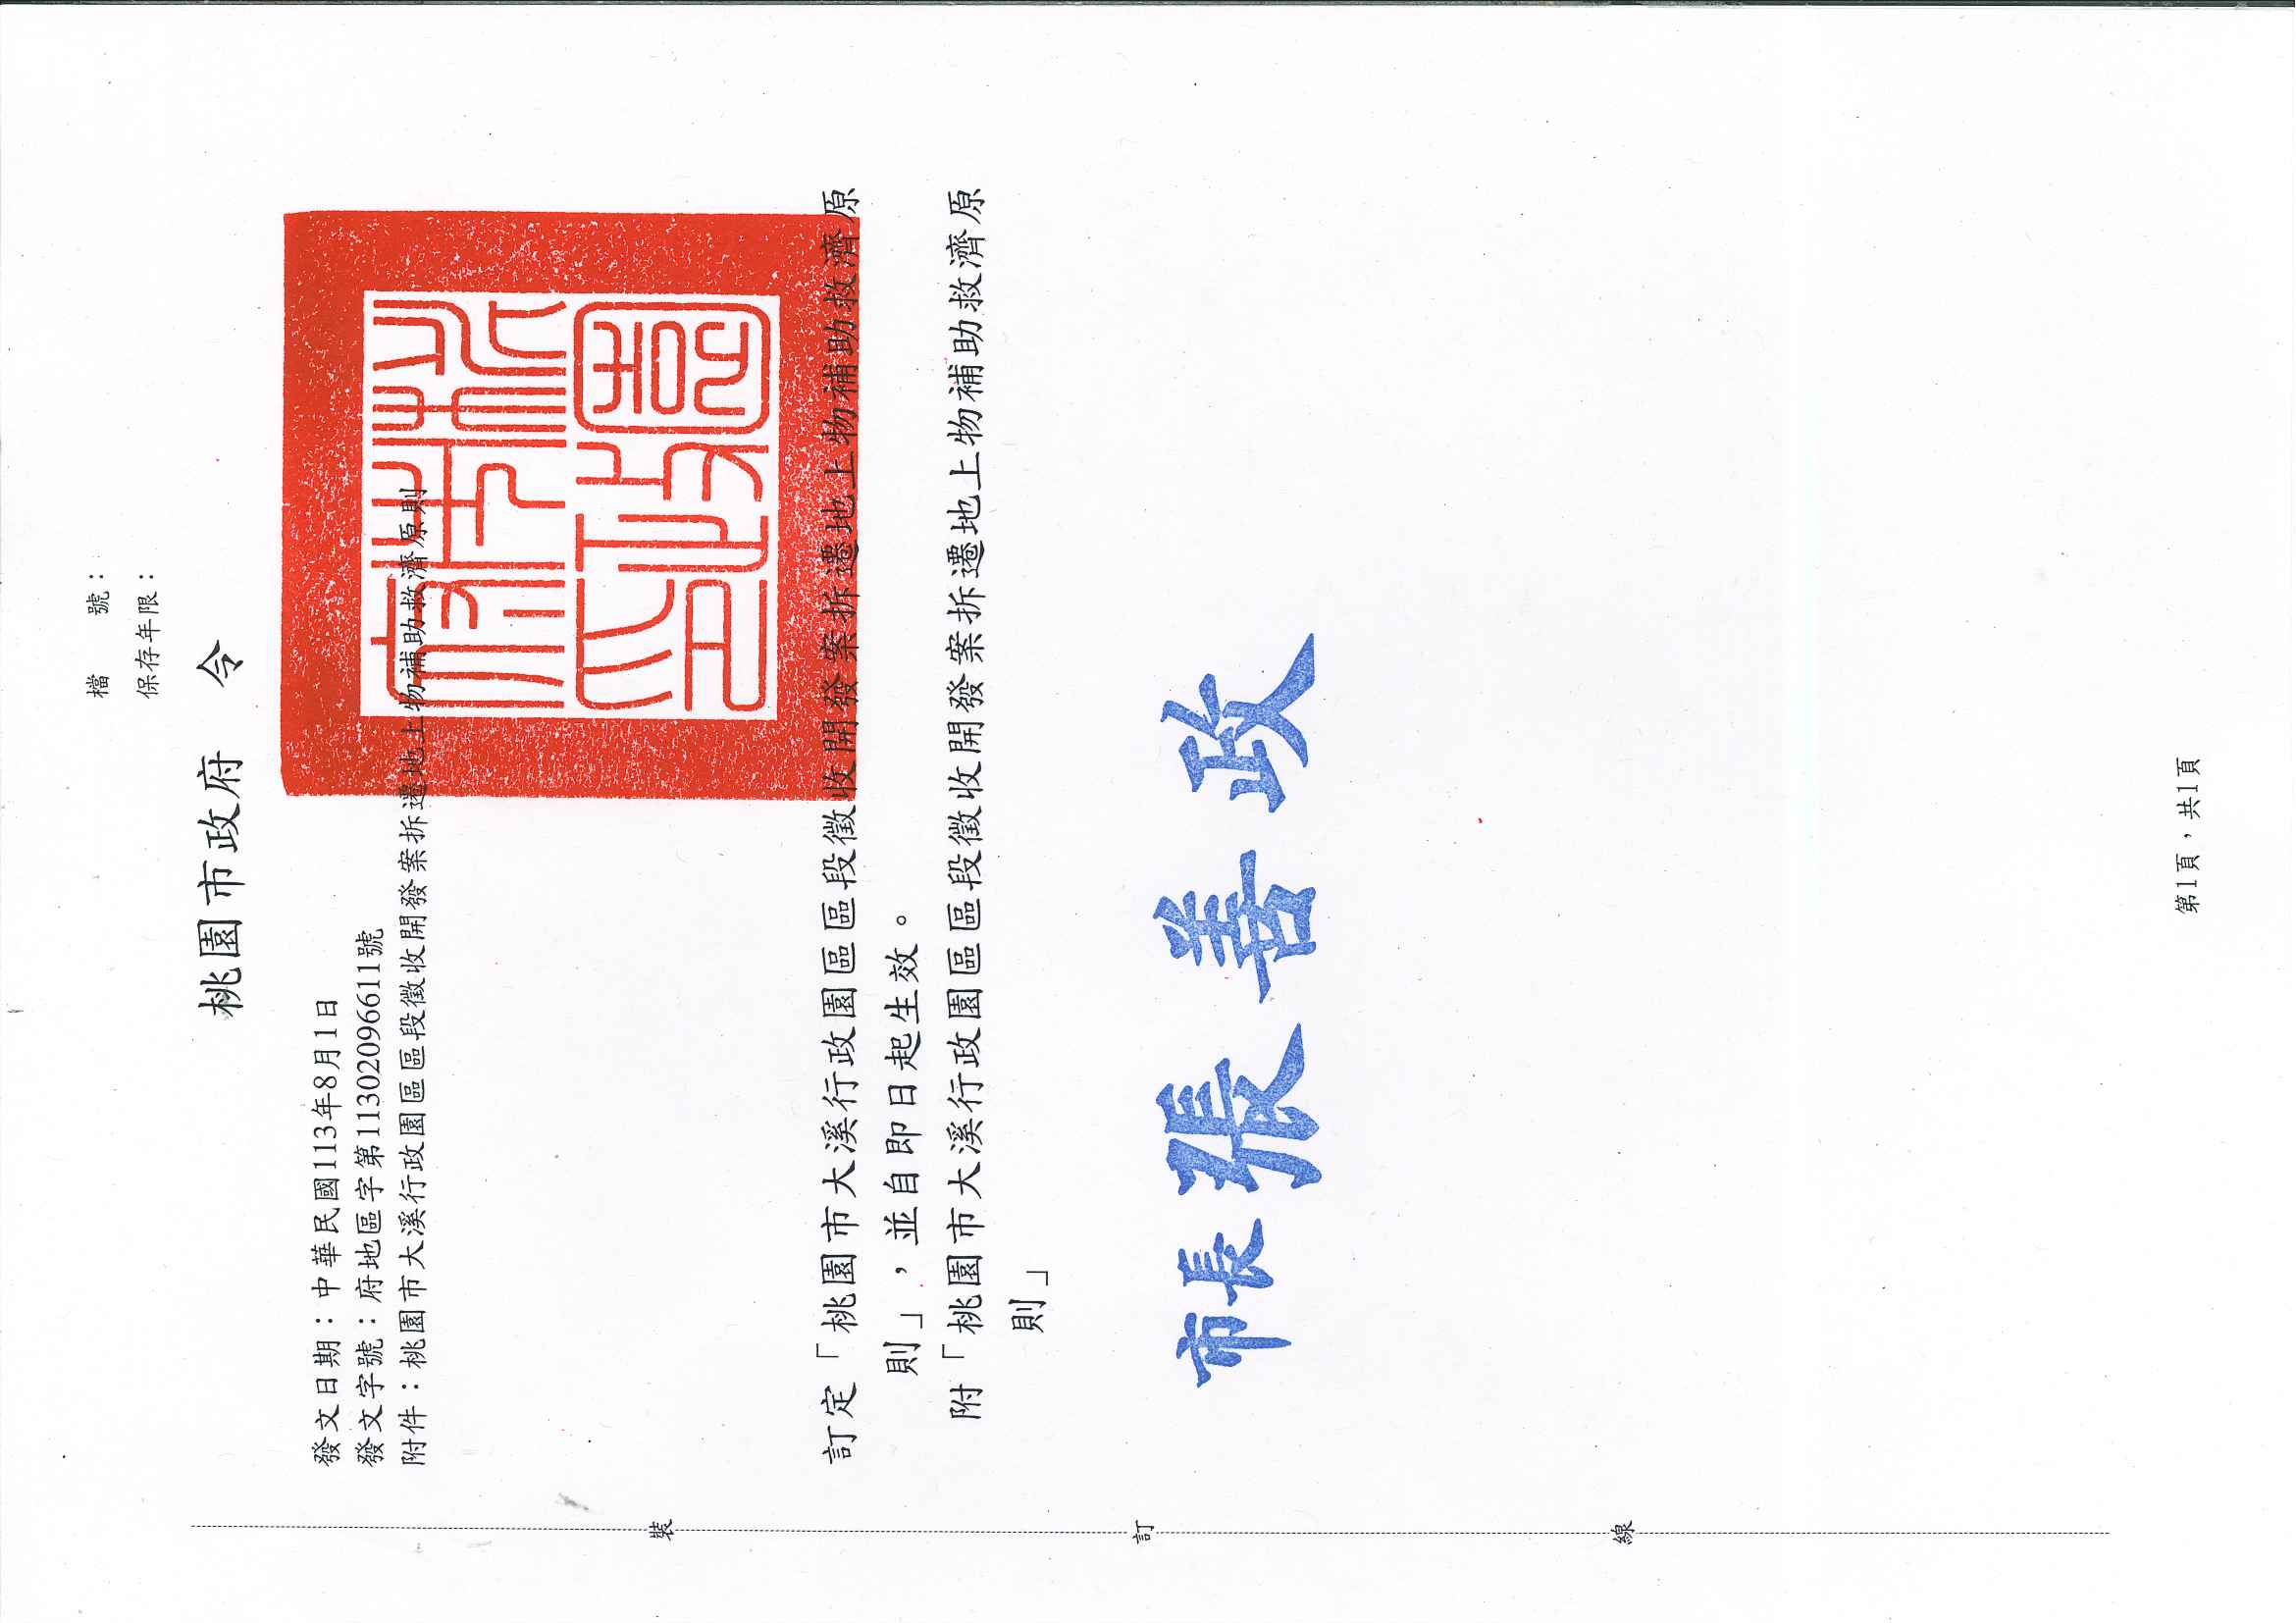 檔　　號：
保存年限：
桃園市政府　令
發文日期：中華民國113年8月1日
發文字號：府地區字第11302096611號
附件：桃園市大溪行政園區區段徵收開發案拆遷地上物補助救濟原則
訂定「桃園市大溪行政園區區段徵收開發案拆遷地上物補助救濟原
則」，並自即日起生效。
附「桃園市大溪行政園區區段徵收開發案拆遷地上物補助救濟原
則」
市長張善政
裝
訂
線
第1頁，共1頁